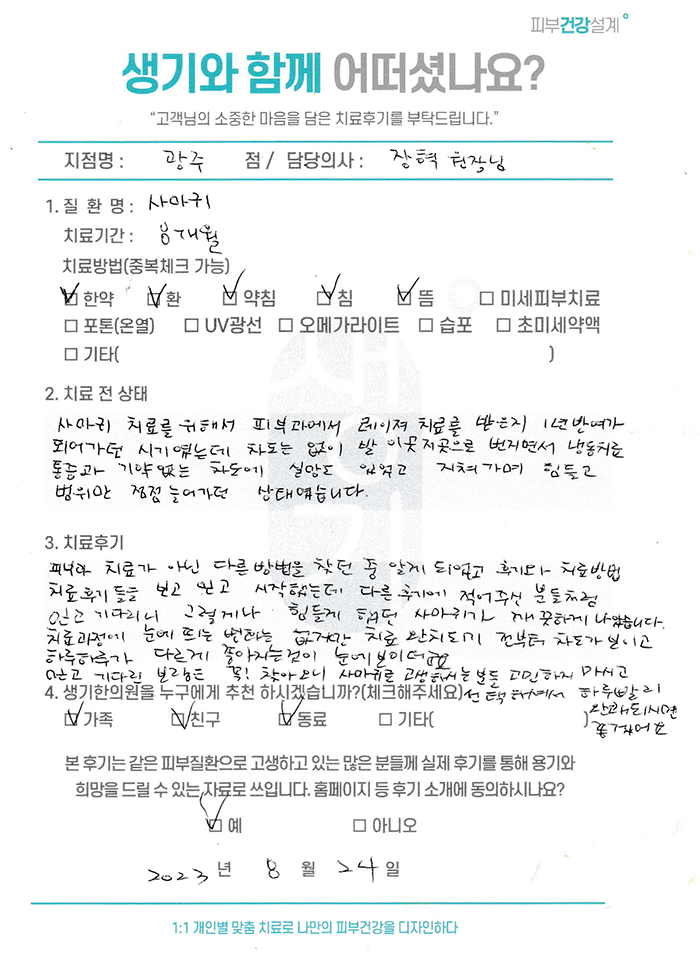 피부건강설계
생기와 함께 어떠셨나요?
“고객님의 소중한 마음을 담은 치료후기를 부탁드립니다.”
지점명 : 광주 점 / 담당의사 : 장혁 원장님
1. 질 환 명 : 사마귀
치료기간 : 8개월
치료방법(중복체크 가능)
☑ 한약 ☑ 환 ☑ 약침 ☑ 침 ☑ 뜸 □ 미세피부치료
□ 포톤(온열) □ UV광선 □ 오메가라이트 □ 습포 □ 초미세약액
□ 기타( )
2. 치료 전 상태
사마귀 치료를 위해서 피부과에서 레이져 치료를 받은지 1년반여가
되어가던 시기였는데 차도는 없이 발 이곳저곳으로 번지면서 냉동치료
통증과 기약없는 차도에 실망도 있었고 지쳐가며 힘들고
범위만 점점 늘어가던 상태였습니다.
3. 치료후기
피부과 치료가 아닌 다른방법을 찾던 중 알게 되었고 후기와 치료방법
치료후기 들을 보고 믿고 시작했는데 다른 후기에 적어주신 분들처럼
믿고 기다리니 그렇게나 힘들게 했던 사마귀가 깨끗하게 나았습니다.
치료과정에 눈에 띄는 변화는 없지만 치료 완치되기 전부터 차도가 보이고
하루하루가 다르게 좋아지는것이 눈에보이더라고요
믿고 기다린 보람은 꼭! 찾아오니 사마귀로 고생하시는분들 고민하지 마시고
4. 생기한의원을 누구에게 추천 하시겠습니까?(체크해주세요) 선택하셔서 하루빨리
☑ 가족 ☑ 친구 ☑ 동료 □ 기타( ) 완쾌되시면
좋겠어요
본 후기는 같은 피부질환으로 고생하고 있는 많은 분들께 실제 후기를 통해 용기와
희망을 드릴 수 있는 자료로 쓰입니다. 홈페이지 등 후기 소개에 동의하시나요?
☑ 예 □ 아니오
2023 년 8 월 24 일
1:1 개인별 맞춤 치료로 나만의 피부건강을 디자인하다
생기